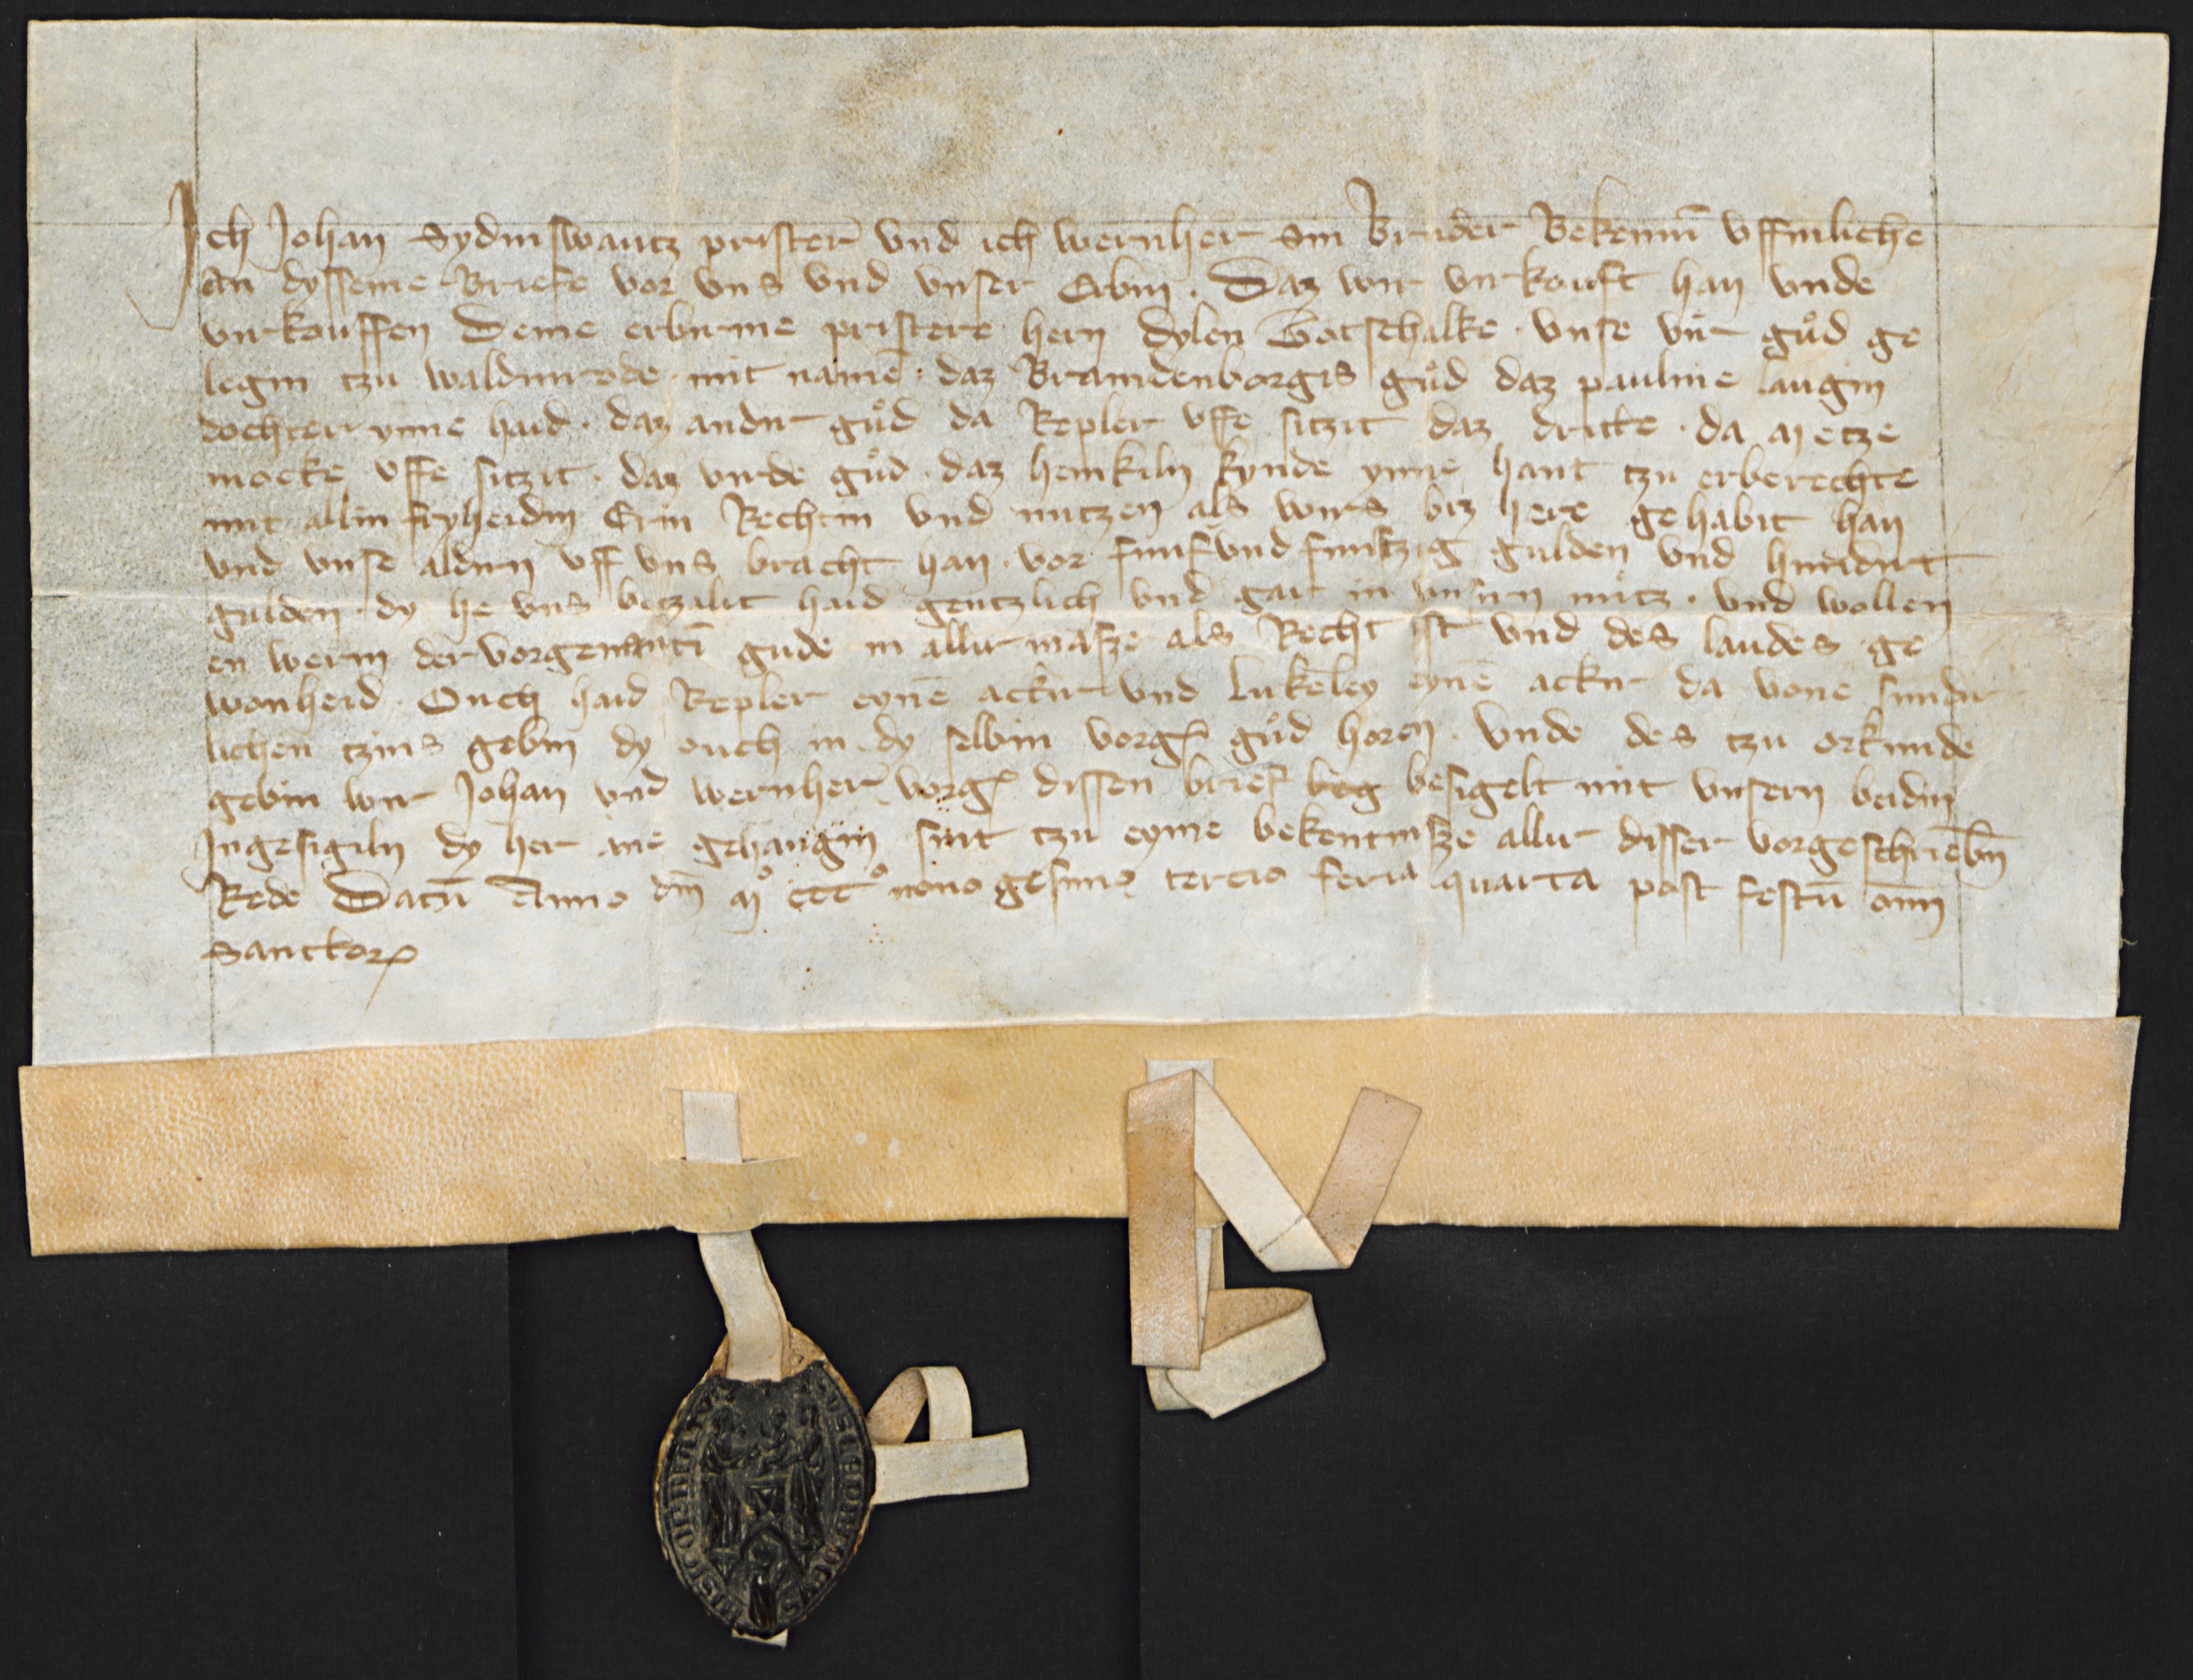 Ich Johan Sydinswantz prister vnd ich wernher sin Bruder Bekennin̄ vffinliche
an dysseme Briefe vor vns vnd vnser Erbin · Daz wir virkouft han vnde
virkouffen Deme erbirme pristere hern dylen Gotschalke · vnse vir gůd ge
legin tzu waldinrode · mit namē · daz Brandenborgis gůd daz pauline langin
dochter ynne haid · daz andir gůd da Repler vffe sitzit daz dritte · da Metze
mocke vffe sitzit · daz virde gůd · daz heinkiln kynde ynne hant tzu erberechte
mit allin fryheidin Erin Rechtin vnd nutzen als wirs biz here gehabit han
vnd vnse aldirn vff vns bracht han · vor funfvndfunftzig gulden vnd hundirt
gulden · dy he vns betzalit haid gentzlich vnd gar in vnsirn nutz · vnd wollen
en werin der vorgenantī gude in allir masze als Recht ist vnd des landes ge
wonheid · Ouch haid Repler eynē ackir vnd lukeley eynē ackir da vone sundir
lichen tzins gebin dy ouch in dy selbin vorḡ gůd horen · vnde des tzu orkunde
gebin wir Johan vnd wernher vorḡ dissen brief besigelt mit vnsern beidin
Ingesigiln dy her ane gehangin sint tzu eyme bekentnisze allir disser vorgeschriebin̄
Rede Datū Anno dn̄i Mͦ cccͦ nonogesimo tercio feria quarta post festū om̄
Sanctorꝝ